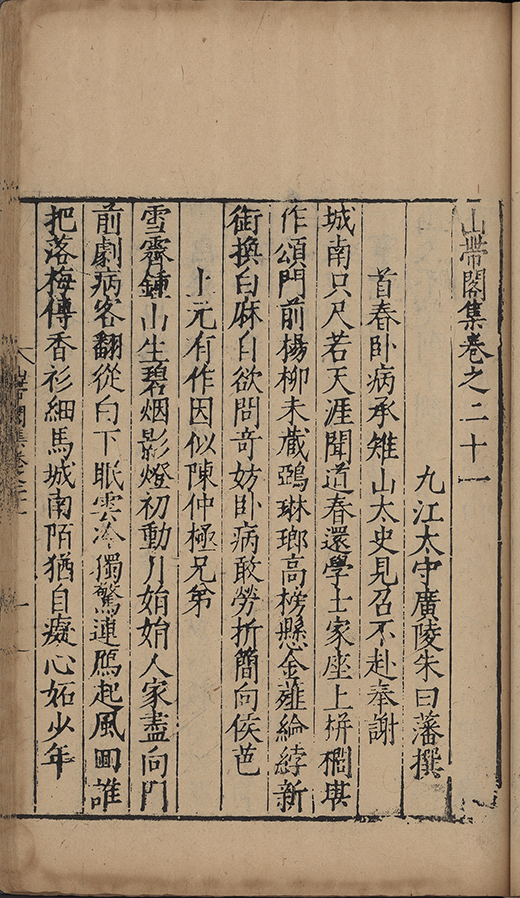 山帶閣集卷之二十一
九江太守廣陵朱曰藩撰
首春卧病承雉山太史見召不赴奉謝
城南只尺若天涯聞道春還學士家座上栟櫚堪
作頌門前楊柳未藏鵶琳瑯高榜懸金薤綸綍新
銜換白麻自欲問奇妨卧病敢勞折簡向侯芭
上元有作因似陳仲極兄苐
雪霽鍾山生碧烟影燈初動月娟娟人家盡向門
前劇病客翻從白下眠雲冷獨驚連鴈起風囬誰
把落梅傳香衫細馬城南陌猶自癡心妬少年